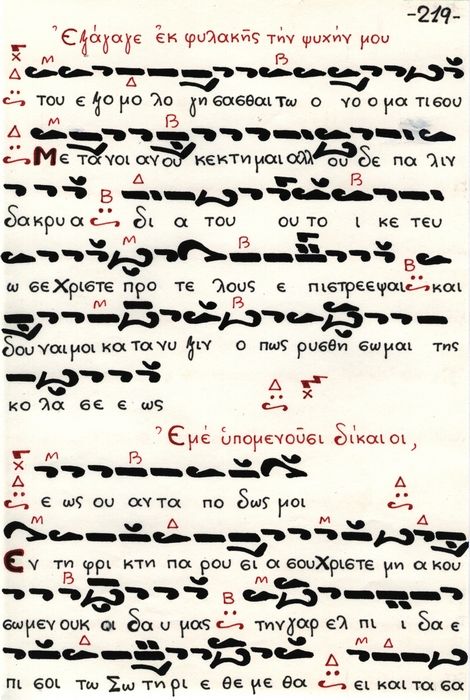 -219-
Ἐξάγαγε ἐκ φυλακῆς τὴν ψυχήν μου
του ε ξο μο λο γη σασθαι τω ο νο ο μα τι σου
Με τα νοι αν ου κεκτημαι αλλ ου δε πα λιν
δακρυ α δι α του ου το ι κε τευ
ω σε Χριστε προ τε λους ε πιστρεεψαι και
δου ναι μοι κα τα νυ ξιν ο πως ρυσθη σωμαι της
κο λα σε ε ως
Ἐμὲ ὑπομενοῦσι δίκαιοι,
ε ως ου αντα πο δως μοι
Εν τη φρι κτη πα ρου σι α σου Χριστε μη α κου
σωμεν ουκ οι δα υ μας την γαρ ελ πι ι δα ε
πι σοι τω Σω τη ρι ε θε με θα ει και τα σα